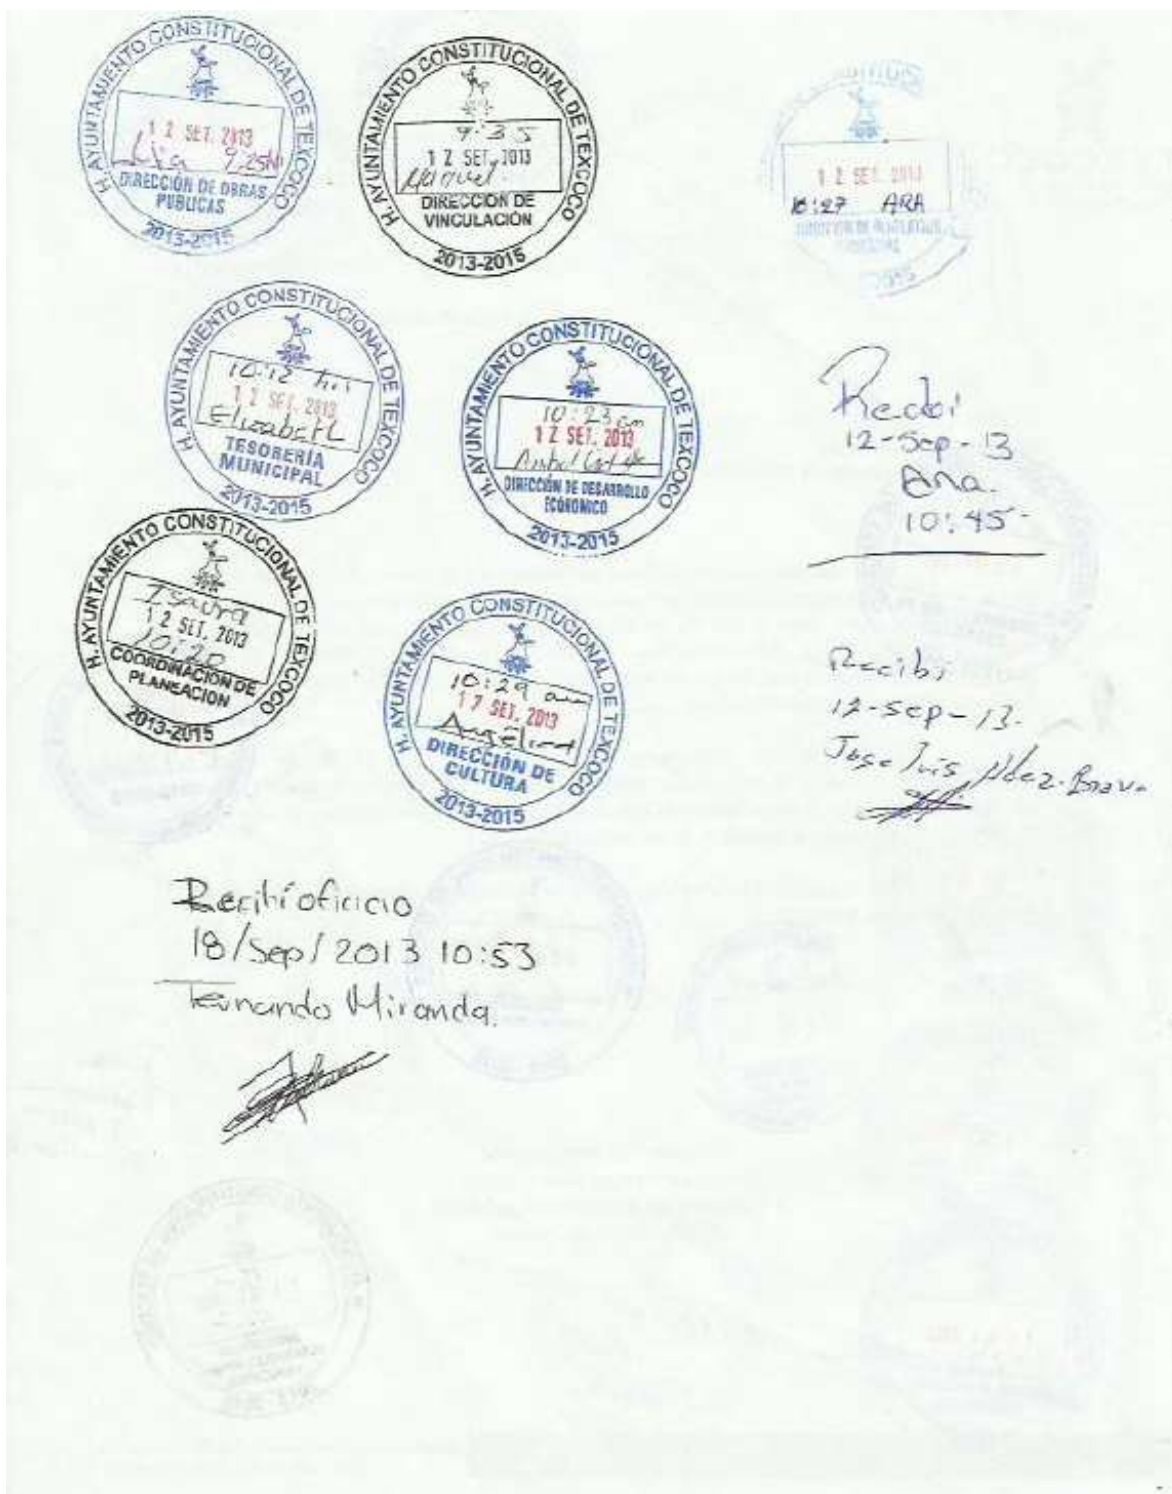 H. AYUNTAMIENTO CONSTITUCIONAL DE TEXCOCO
1 2 SET. 2013
Lia 9:25
DIRECCIÓN DE OBRAS
PUBLICAS
2013-2015
H. AYUNTAMIENTO CONSTITUCIONAL DE TEXCOCO
9:35
1 2 SET. 2013
Manuel.
DIRECCIÓN DE
VINCULACIÓN
2013-2015
1 2 SET. 2013
10:27 ARA
2015
H. AYUNTAMIENTO CONSTITUCIONAL DE TEXCOCO
10:12 hrs
1 2 SET. 2013
Elizabeth
TESORERÍA
MUNICIPAL
2013-2015
H. AYUNTAMIENTO CONSTITUCIONAL DE TEXCOCO
10:23 am
1 2 SET. 2013
DIRECCIÓN DE DESARROLLO
ECONOMICO
2013-2015
Recibi
12-Sep-13
Ana.
10:45-
H. AYUNTAMIENTO CONSTITUCIONAL DE TEXCOCO
Isaura
1 2 SET. 2013
10:20
COORDINACIÓN DE
PLANEACION
2013-2015
H. AYUNTAMIENTO CONSTITUCIONAL DE TEXCOCO
10:29 am
SET. 2013
Angélica
DIRECCIÓN DE
CULTURA
2013-2015
Recibi
12-sep-13.
Jose Luis Hdez. Bravo
Recibí oficio
18/Sep/2013 10:53
Fernando Miranda.